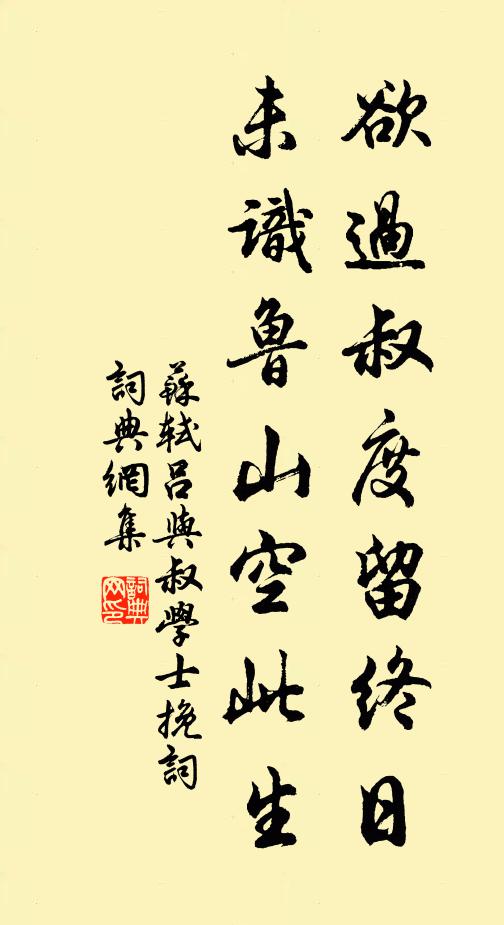 欲過叔度留終日
未識魯山空此生
蘇軾呂與叔學士挽詞
詞典網集
詞典網印